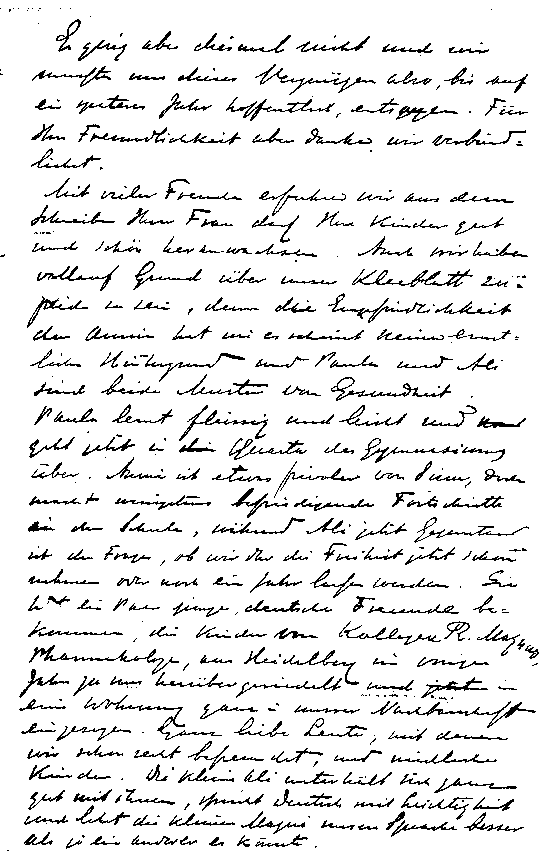 Es ging aber diesmal nicht und wir
mussten uns dieses Vergnügen also, bis auf
ein späteres Jahr hoffentlich, entsagen. Für
Ihre Freundlichkeit aber danken wir verbind-
lichst.
Mit vieler Freude erfuhren wir aus dem
Schreiben Ihrer Frau daß Ihre Kinder gut
und schön heranwachsen. Auch wir haben
vollauf Grund über unser Kleeblatt zu-
frieden zu sein, denn die Empfindlichkeit
der Annie hat wie es scheint keinen ernst-
lichen Hintergrund und Paula und Ali
sind beide Muster von Gesundheit.
Paula lernt fleissig und leicht und
geht jetzt in die Quarta des Gymnasiums
über. Annie ist etwas frivoler von Sinn, doch
macht wenigstens befriedigende Fortschritte
in der Schule, während Ali jetzt Gegenstand
ist der Frage, ob wir ihr die Freiheit jetzt schon
nehmen oder noch ein Jahr lassen werden. Sie
hat ein Paar junge, deutsche Freunde be-
kommen, die Kinder von Kollegen R. Magnus,
Pharmakologe, aus Heidelberg im vorigen
Jahre zu uns herübergesiedelt und jetzt in
eine Wohnung ganz in unserer Nachbarschaft
eingezogen. Ganz liebe Leute, mit denen
wir schon recht befreundet, und niedliche
Kinder. Die kleine Ali unterhält sich ganz
gut mit ihnen, spricht Deutsch mit Leichtigkeit
und lehrt die kleinen Magnus unsere Sprache besser
als je ein anderer es könnte.